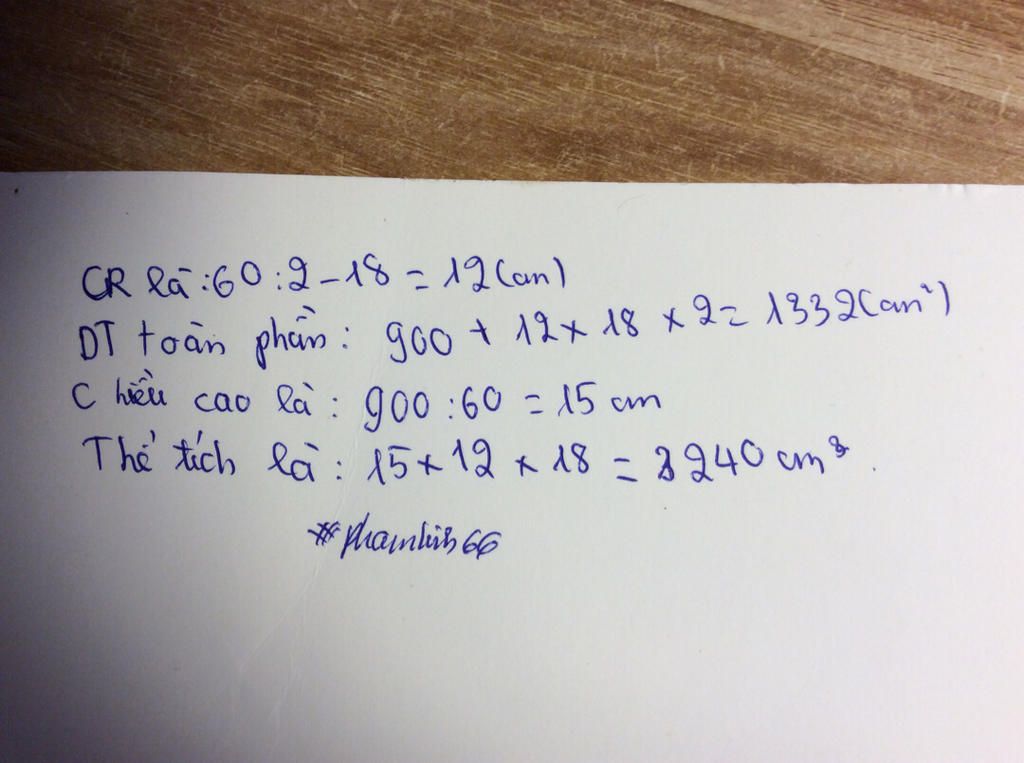 CR là : 60 : 2 - 18 = 12 (cm)
DT toàn phần : 900 + 12 x 18 x 2 = 1332 (cm²)
Chiều cao là : 900 : 60 = 15 cm
Thể tích là : 15 x 12 x 18 = 3240 cm³.